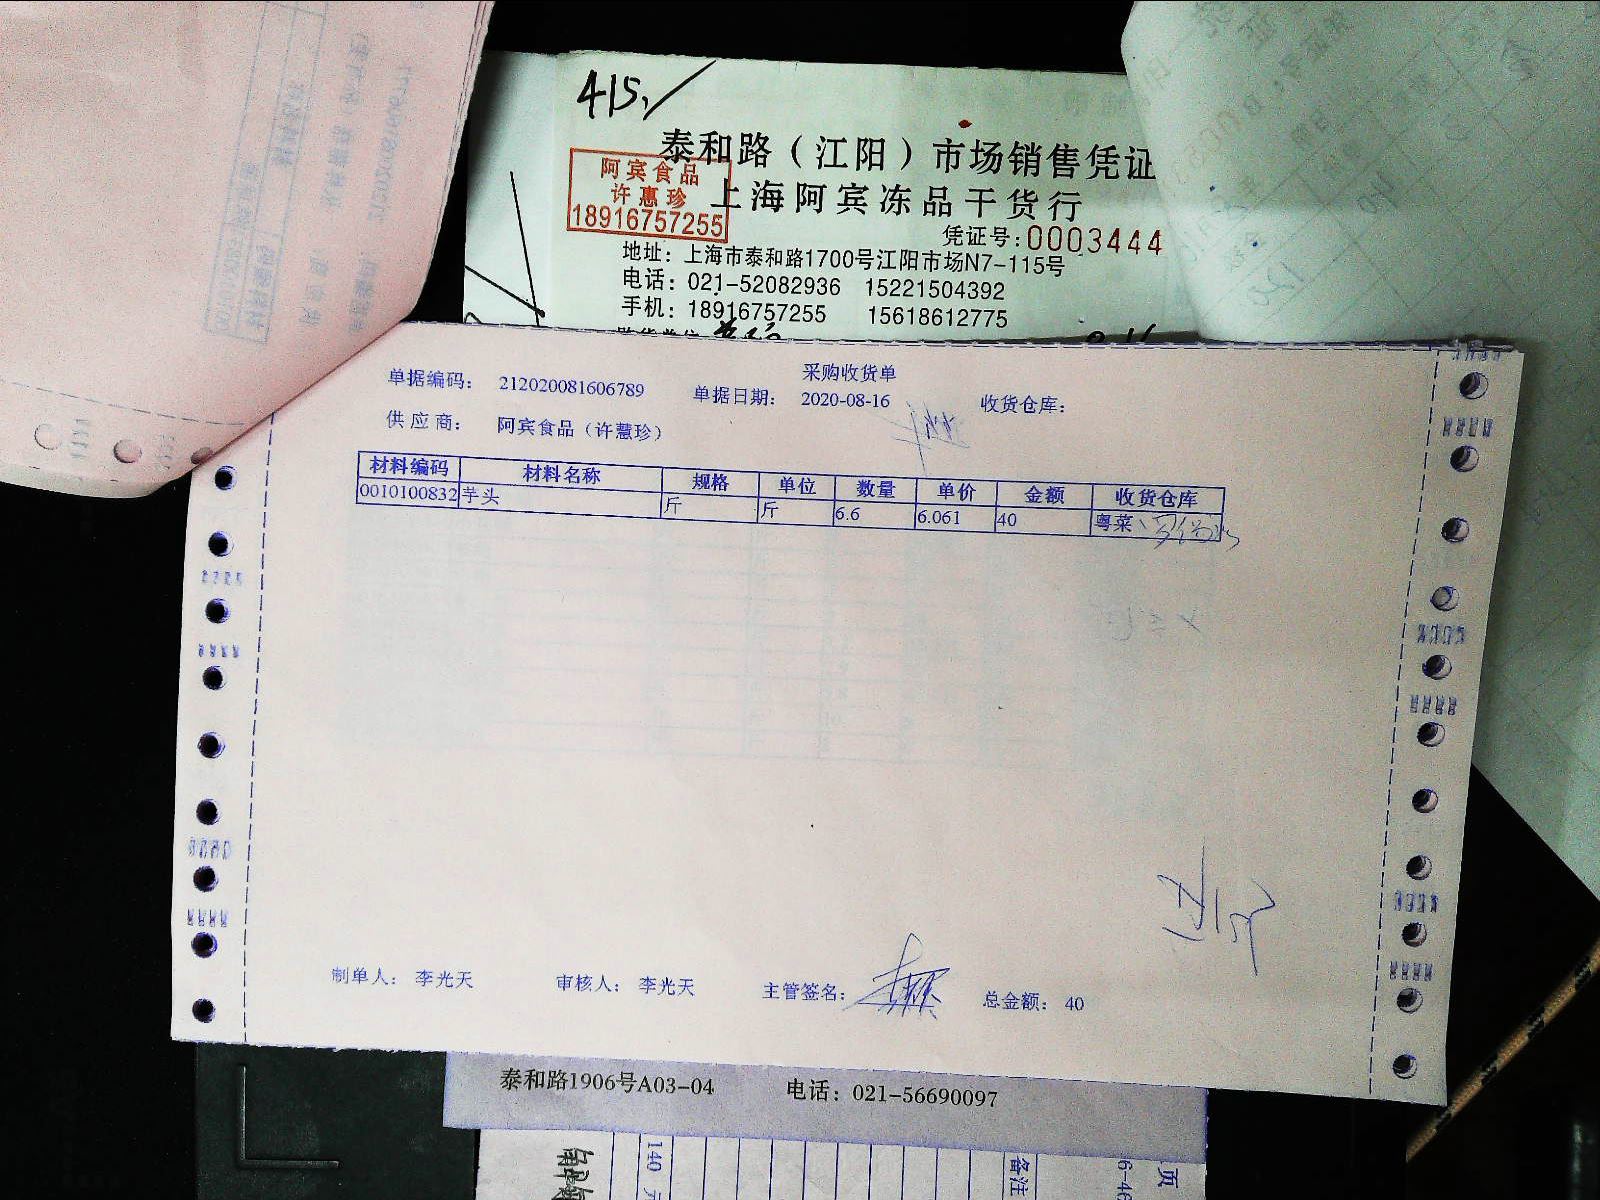 415,
泰和路（江阳）市场销售凭证
阿宾食品
许惠珍
18916757255
上海阿宾冻品干货行
凭证号:0003444
地址：上海市泰和路1700号江阳市场N7-115号
电话：021-52082936 15221504392
手机：18916757255 15618612775
采购收货单
单据编码： 212020081606789 单据日期： 2020-08-16 收货仓库：
供应商： 阿宾食品（许慧珍）
材料编码 材料名称 规格 单位 数量 单价 金额 收货仓库
0010100832 芋头 斤 斤 6.6 6.061 40 粤菜
制单人： 李光天 审核人： 李光天 主管签名： 总金额： 40
泰和路1906号A03-04 电话：021-56690097
140 元
备注
页